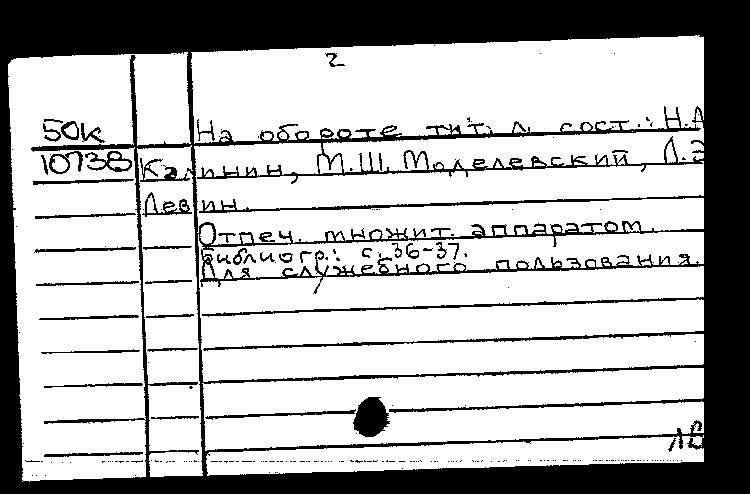 2
50к На обороте тит. л. сост.: Н.А
10738 Калинин, М.Ш. Моделевский, Л.Э
Левин.
Отпеч. множит. аппаратом.
Библиогр.: с. 36-37.
Для служебного пользования.